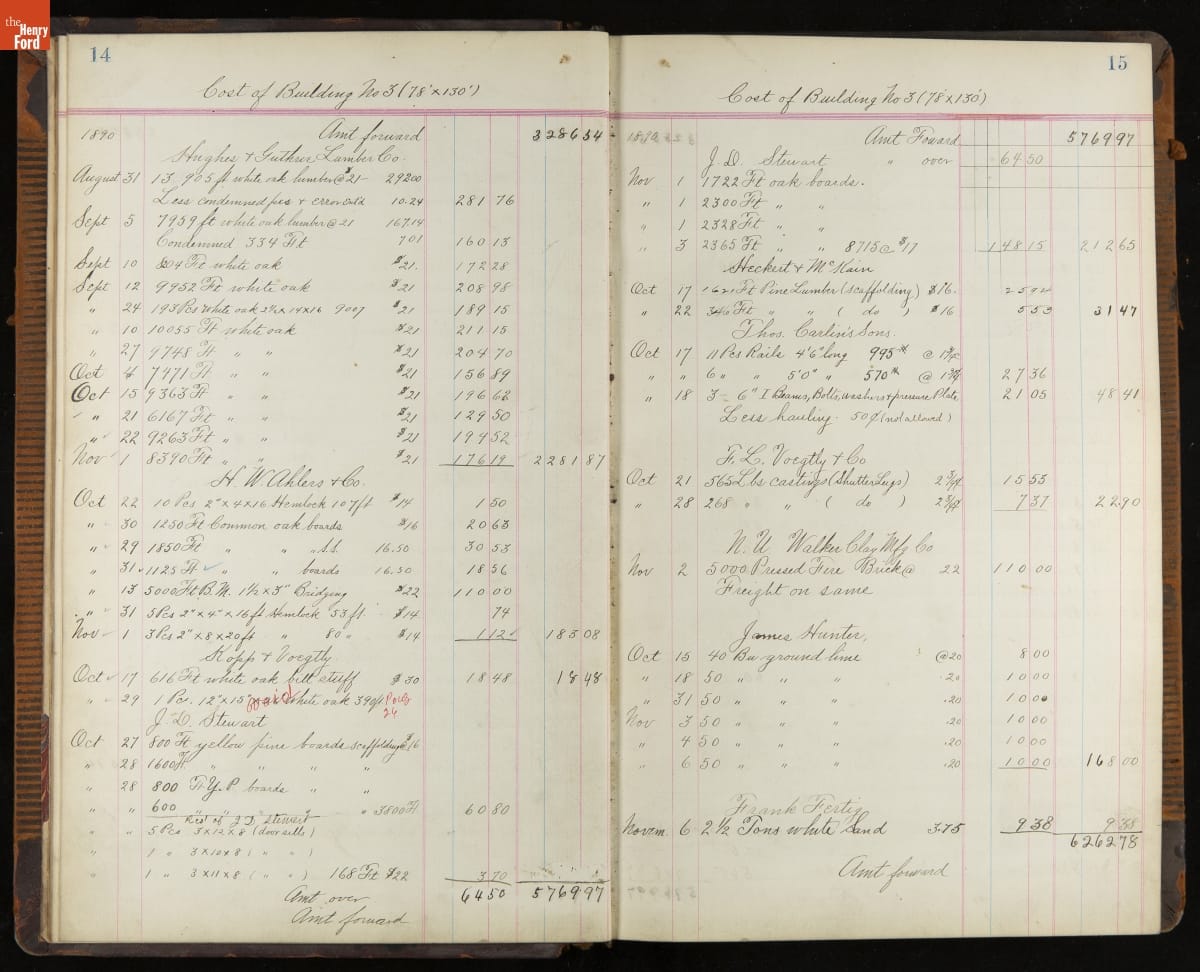 the
Henry
Ford
14
Cost of Building No 3 (78' x 130')
1890 Amt forward 3286 54
Hughes & Guthrie Lumber Co.
August 31 13,905 ft white oak lumber @ $21 - 292 00
Less condemned pcs & error 10.24 281 76
Sept 5 7959 ft white oak lumber @ 21 167.14
Condemned 334 Ft 7 01 160 13
Sept 10 804 Ft white oak $21. 172 28
Sept 12 9952 Ft white oak $21 208 98
" 24 193 Pcs white oak 2½ x 14 x 16 9007 $21 189 15
" 10 10055 Ft white oak $21 211 15
" 27 9748 Ft " " $21 204 70
Oct 4 7471 Ft " " $21 156 89
Oct 15 9363 Ft " " $21 196 62
" 21 6167 Ft " " $21 129 50
" 22 9263 Ft " " $21 194 52
Nov 1 8390 Ft " " $21 176 19 2281 87
H. W. Ahlers & Co.
Oct 22 10 Pcs 2" x 4 x 16 Hemlock 107 ft $14 1 50
" 30 1250 Ft Common oak boards $16 20 63
" 29 1850 Ft " " S.S. 16.50 30 53
" 31 1125 Ft " " boards 16.50 18 56
" 13 5000 Ft B.M. 1½ x 3" Bridging $22 110 00
" 31 5 Pcs 2" x 4" x 16 ft Hemlock 53 ft $14 74
Nov 1 3 Pcs 2" x 8 x 20 ft " 80 " $14 1 12 185 08
Kopp & Voegtly
Oct 17 616 Ft white oak bill stuff $30 18 48 18 48
" 29 1 Pc. 12" x 15" White oak 390 ft
J. D. Stewart
Oct 27 800 Ft yellow pine boards scaffolding @ $16
" 28 1600 Ft " " " "
" 28 800 Ft Y.P. boards " "
600 " " " " 3800 Ft 60 80
Rec'd of J D Stewart
" " 5 Pcs 3 x 12 x 8 (door sills)
" 1 " 3 x 10 x 8 ( " " )
" 1 " 3 x 11 x 8 ( " " ) 168 Ft $22 3 70
Amt over 64 50 5769 97
Amt forward
15
Cost of Building No 3 (78' x 130')
1890 Amt Foward 5769 97
J. D. Stewart " over 64 50
Nov 1 1722 Ft oak boards.
" 1 2300 Ft " "
" 1 2328 Ft " "
" 3 2365 Ft " " 8715 @ $17 148 15 212 65
Heckert & McKain
Oct 17 1621 Ft Pine Lumber (scaffolding) $16. 25 94
" 22 Ft " " ( do ) $16 5 53 31 47
Thos. Carlin's Sons.
Oct 17 11 Pcs Rails 4'6" long 995 #
" " 6 " " 5'0" " 570 # 27 36
" 18 3 - 6" I Beams, Bolts, washers & pressure Plate 21 05 48 41
Less hauling. 50¢ (not allowed)
F. L. Voegtly & Co
Oct 21 565 Lbs castings (Shutter Lugs) 2¾ 15 53
" 28 268 " " ( do ) 2¾ 7 37 22 90
N. U Walker Clay Mfg Co
Nov 2 5000 Pressed Fire Brick @ 22 110 00
Freight on same
James Hunter,
Oct 15 40 Bu ground lime @ 20 8 00
" 18 50 " " " .20 10 00
" 31 50 " " " .20 10 00
Nov 3 50 " " " .20 10 00
" 4 50 " " " .20 10 00
" 6 50 " " " .20 10 00 168 00
Frank Fertig
Novem. 6 2½ Tons white Sand 3.75 9 38 9 38
6262 78
Amt forward